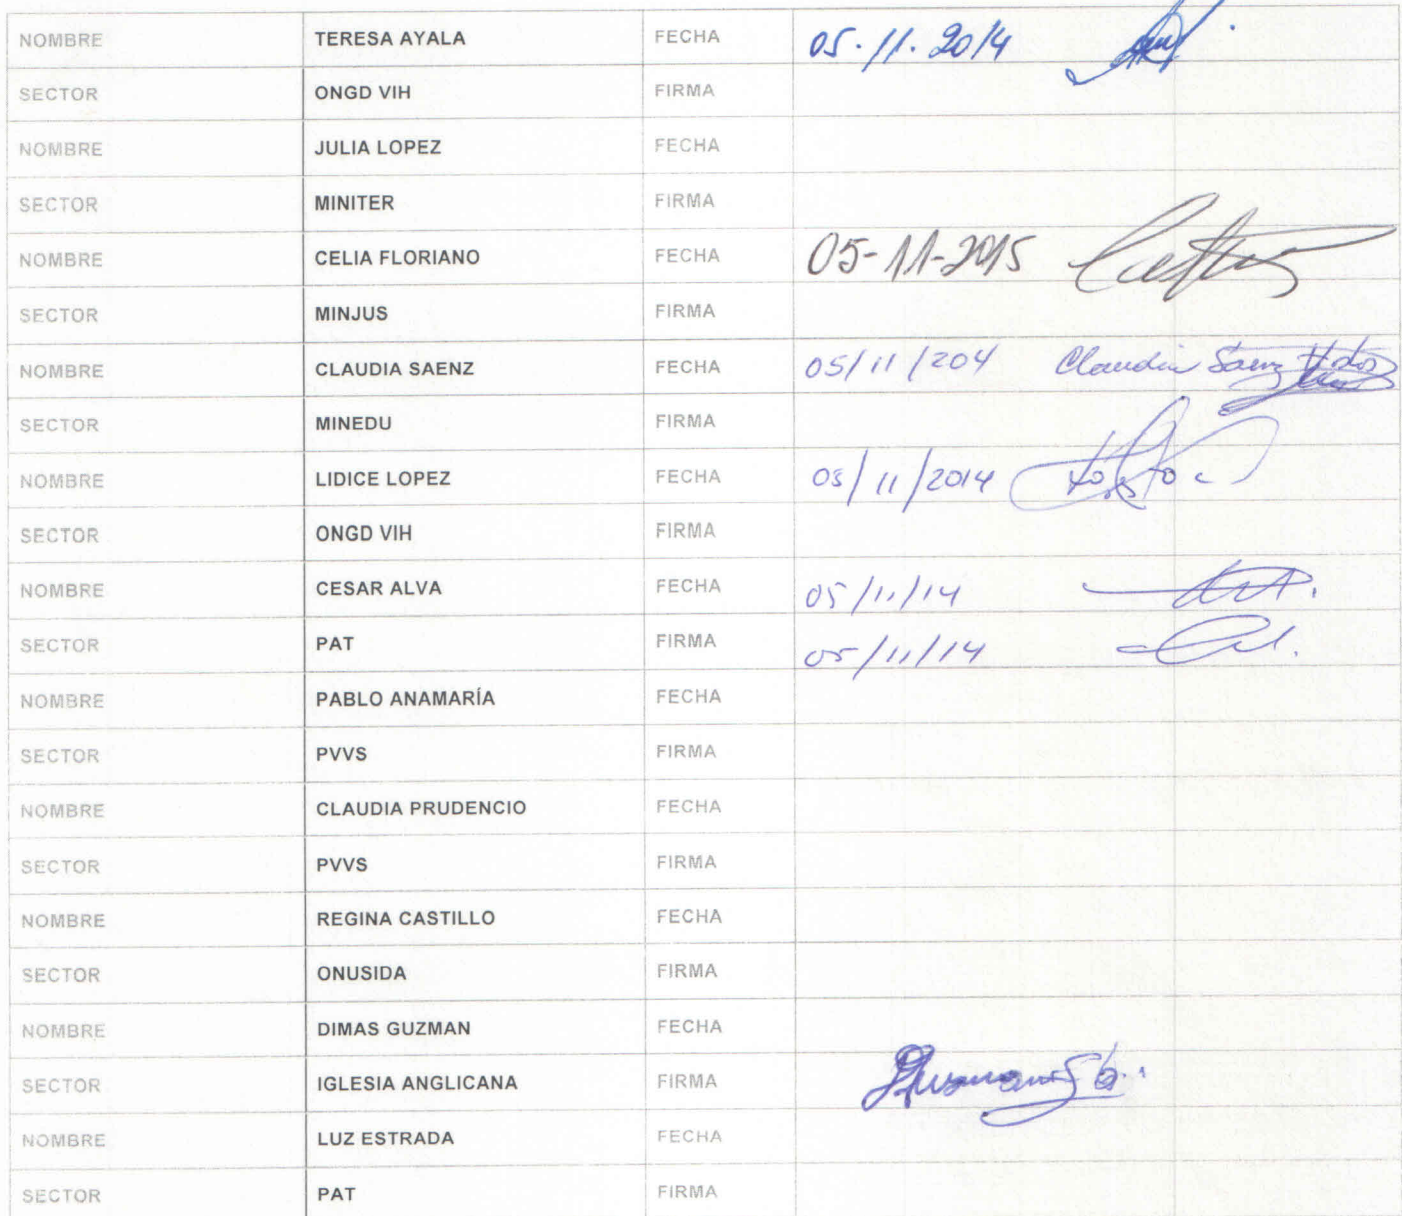 NOMBRE TERESA AYALA FECHA 05.11.2014
SECTOR ONGD VIH FIRMA
NOMBRE JULIA LOPEZ FECHA
SECTOR MINITER FIRMA
NOMBRE CELIA FLORIANO FECHA 05-11-2015
SECTOR MINJUS FIRMA
NOMBRE CLAUDIA SAENZ FECHA 05/11/204 Claudia Saenz
SECTOR MINEDU FIRMA
NOMBRE LIDICE LOPEZ FECHA 05/11/2014
SECTOR ONGD VIH FIRMA
NOMBRE CESAR ALVA FECHA 05/11/14
SECTOR PAT FIRMA 05/11/14
NOMBRE PABLO ANAMARÍA FECHA
SECTOR PVVS FIRMA
NOMBRE CLAUDIA PRUDENCIO FECHA
SECTOR PVVS FIRMA
NOMBRE REGINA CASTILLO FECHA
SECTOR ONUSIDA FIRMA
NOMBRE DIMAS GUZMAN FECHA
SECTOR IGLESIA ANGLICANA FIRMA
NOMBRE LUZ ESTRADA FECHA
SECTOR PAT FIRMA